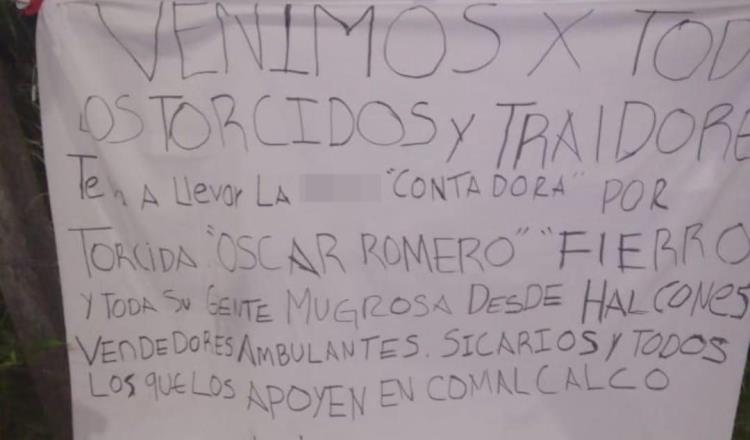 VENIMOS X TOD
LOS TORCIDOS Y TRAIDORE
Te A LLevar LA "CONTADORA" POR
TORCIDA "OSCAR ROMERO" "FIERRO
Y TODA SU GENTE MUGROSA DESDE HALCONES
VENDEDORES AMBULANTES. SICARIOS Y TODOS
LOS QUE LOS APOYEN EN COMALCALCO